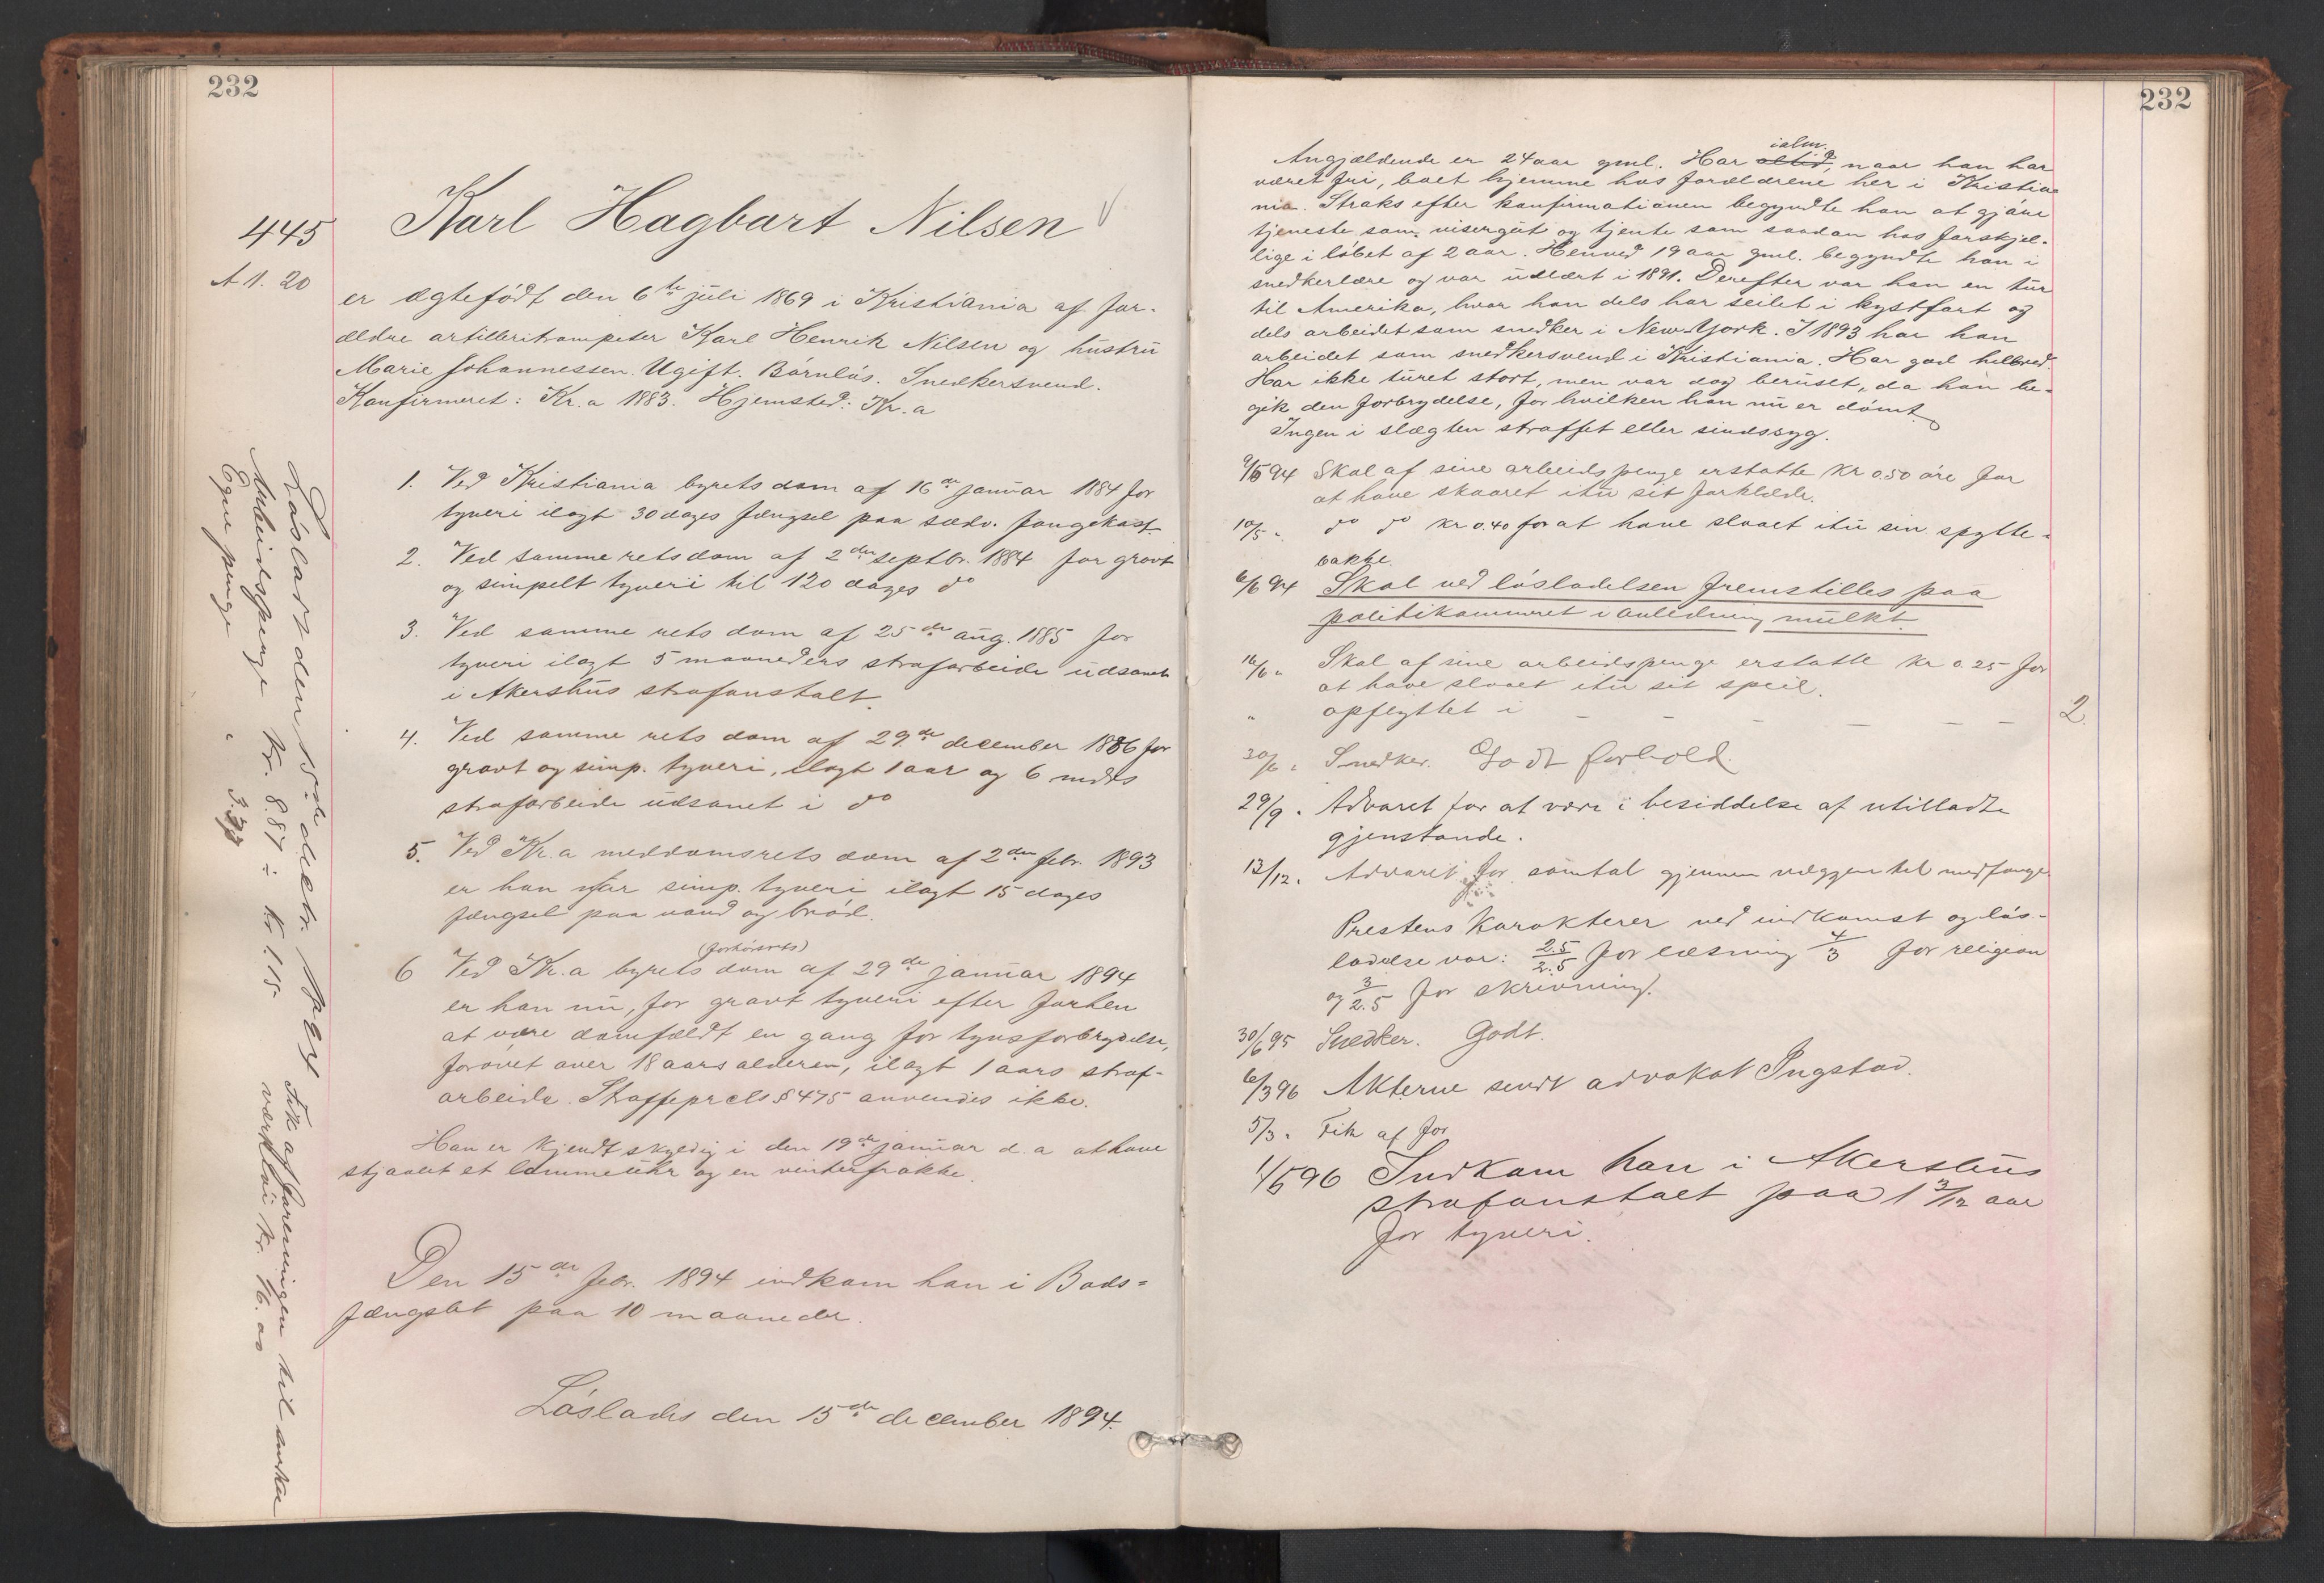 232
445
A 1. 20
Karl Hagbart Nilsen
er ægtefödt den 6te juli 1869 i Kristiania af for-
ældre artilleritrompeter Karl Henrik Nilsen og hustru
Marie Johannessen. Ugift. Börnlös. Snedkersvend.
Konfirmeret: Kr.a 1883. Hjemsted: Kr.a
1. Ved Kristiania byrets dom af 16de januar 1884 for
tyveri ilagt 30 dages fængsel paa sædv. fangekost.
2. Ved samme rets dom af 2den septbr. 1884 for grovt
og simpelt tyveri til 120 dages do
3. Ved samme rets dom af 25de aug. 1885 for
tyveri ilagt 5 maaneders strafarbeide udsonet
i Akershus strafanstalt.
4. Ved samme rets dom af 29de december 1886 for
grovt og simp. tyveri, ilagt 1 aar og 6 mdrs
strafarbeide udsonet i do
5. Ved Kr.a meddomsrets dom af 2den febr. 1893
er han for simp. tyveri ilagt 15 dages
fængsel paa vand og bröd.
(forhörsrets)
6 Ved Kr.a byrets dom af 29de januar 1894
er han nu, for grovt tyveri efter forhen
at være domfældt en gang for tyvsforbrydelse,
forövet over 18 aars alderen, ilagt 1 aars straf-
arbeide. Straffeprcls § 475 anvendes ikke.
Han er kjendt skyldig i den 19de januar d.a at have
stjaalet et lommeuhr og en vinterfrakke.
Den 15de febr. 1894 indkom han i Bods-
fængslet paa 10 maaneder.
Löslades den 15de december 1894.
Lösladt den 15de decbr. 1894
Arbeidspenge Kr. 8.87 ÷ Kr. 1.15
Egne penge " 3.
Fik af foreningen til
værktöi Kr. 16.00
232
Angjældende er 24 aar gml. Har altid, ialm. naar han har
været fri, boet hjemme hos forældrene her i Kristia-
nia. Straks efter konfirmationen begyndte han at gjöre
tjeneste som visergut og tjente som saadan hos forskjel-
lige i löbet af 2 aar. Henved 19 aar gml. begyndte han i
snedkerlære og var udlært i 1891. Derefter var han en tur
til Amerika, hvor han dels har seilet i kystfart og
dels arbeidet som snedker i New-York. I 1893 har han
arbeidet som snedkersvend i Kristiania. Har god helbred.
Har ikke turet stort, men var dog beruset, da han be-
gik den forbrydelse, for hvilken han nu er dömt.
Ingen i slægten straffet eller sindssyg.
9/5 94 Skal af sine arbeidspenge erstatte Kr 0.50 öre for
at have skaaret itu sit forklæde.
10/5 " do do Kr 0.40 for at have slaaet itu sin spytte-
bakke.
6/6 94 Skal ved lösladelsen fremstilles paa
politikammeret i anledning mulkt.
16/6 " Skal af sine arbeidspenge erstatte Kr 0.25 for
at have slaaet itu sit speil.
" opflyttet i — — — — — — 2.
30/6 " Snedker. Godt forhold.
29/9 " Advaret for at være i besiddelse af utilladte
gjenstande.
13/12 " Advaret for samtal gjennem væggen til medfange.
Prestens Karakterer ved indkomst og lös-
ladelse var: 2.5/2.5 for læsning 4/3 for religion
og 3/2.5 for skrivning.
30/6 95 Snedker. Godt.
6/3 96 Akterne sendt advokat Ingstad.
5/3 " Fik af for
1/5 96 Indkom han i Akershus
strafanstalt paa 1 3/12 aar
for tyveri.